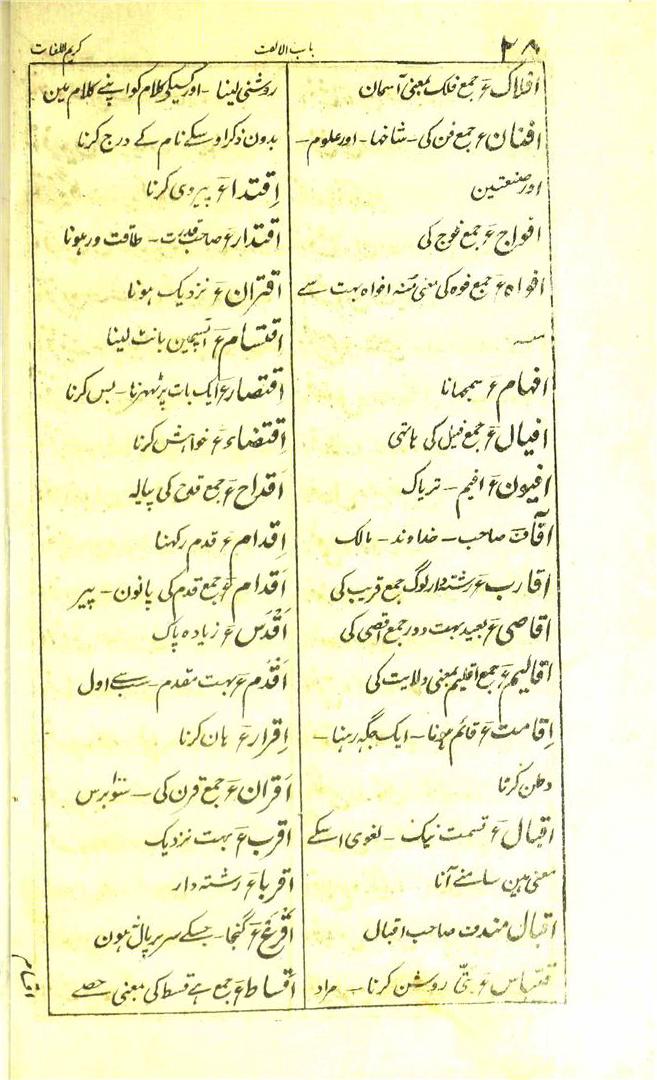 ۲۸
باب الالف
کریم اللغات
افلاک ع جمع فلک بمعنی آسمان
افنان ع جمع فن کی - شاخہا - اور علوم -
اور صنعتین
افواج ع جمع فوج کی
افواہ ع جمع فوہ کی معنی منہ افواہ بہت سے
منہ
افہام ع سمجھانا
افیال ع جمع فیل کی ہاتھی
افیون ع افیم - تریاک
آقا ت صاحب - خداوند - مالک
اقارب ع رشتہ دار لوگ جمع قریب کی
اقاصی ع بعید بہت دور جمع اقصی کی
اقالیم ع جمع اقلیم بمعنی ولایت کی
اِقامت ع قائم ہونا - ایک جگہ رہنا -
وطن کرنا
اقبال ع قسمت نیک - لغوی اسکے
معنی ہین سامنے آنا
اقبال مند ف صاحب اقبال
اقتباس ع بتّی روشن کرنا - مراد
روشنی لینا - اور کسیکی کلام کو اپنے کلام مین
بدون ذکر اوسکے نام کے درج کرنا
اِقتدا ع پیروی کرنا
اقتدار ع صاحب قدرت - طاقت ور ہونا
اقتران ع نزدیک ہونا
اقتسام ع آپسمین بانٹ لینا
اقتصار ع ایک بات پر ٹھہرنا - بس کرنا
اِقتضاء ع خواہش کرنا
اَقداح ع جمع قدح کی پیالہ
اِقدام ع قدم رکھنا
اَقدام ع جمع قدم کی پانون - پیر
اَقْدَس ع زیادہ پاک
اَقْدَم ع بہت مقدم - سب سے اول
اِقرار ع ہان کرنا
اَقران ع جمع قرن کی - سو برس
اقرب ع بہت نزدیک
اقربا ع رشتہ دار
اَقْرَع ع گنجا - جسکے سر پر بال نہون
اَقساط ع جمع ہے قسط کی معنی حصے
اقسام